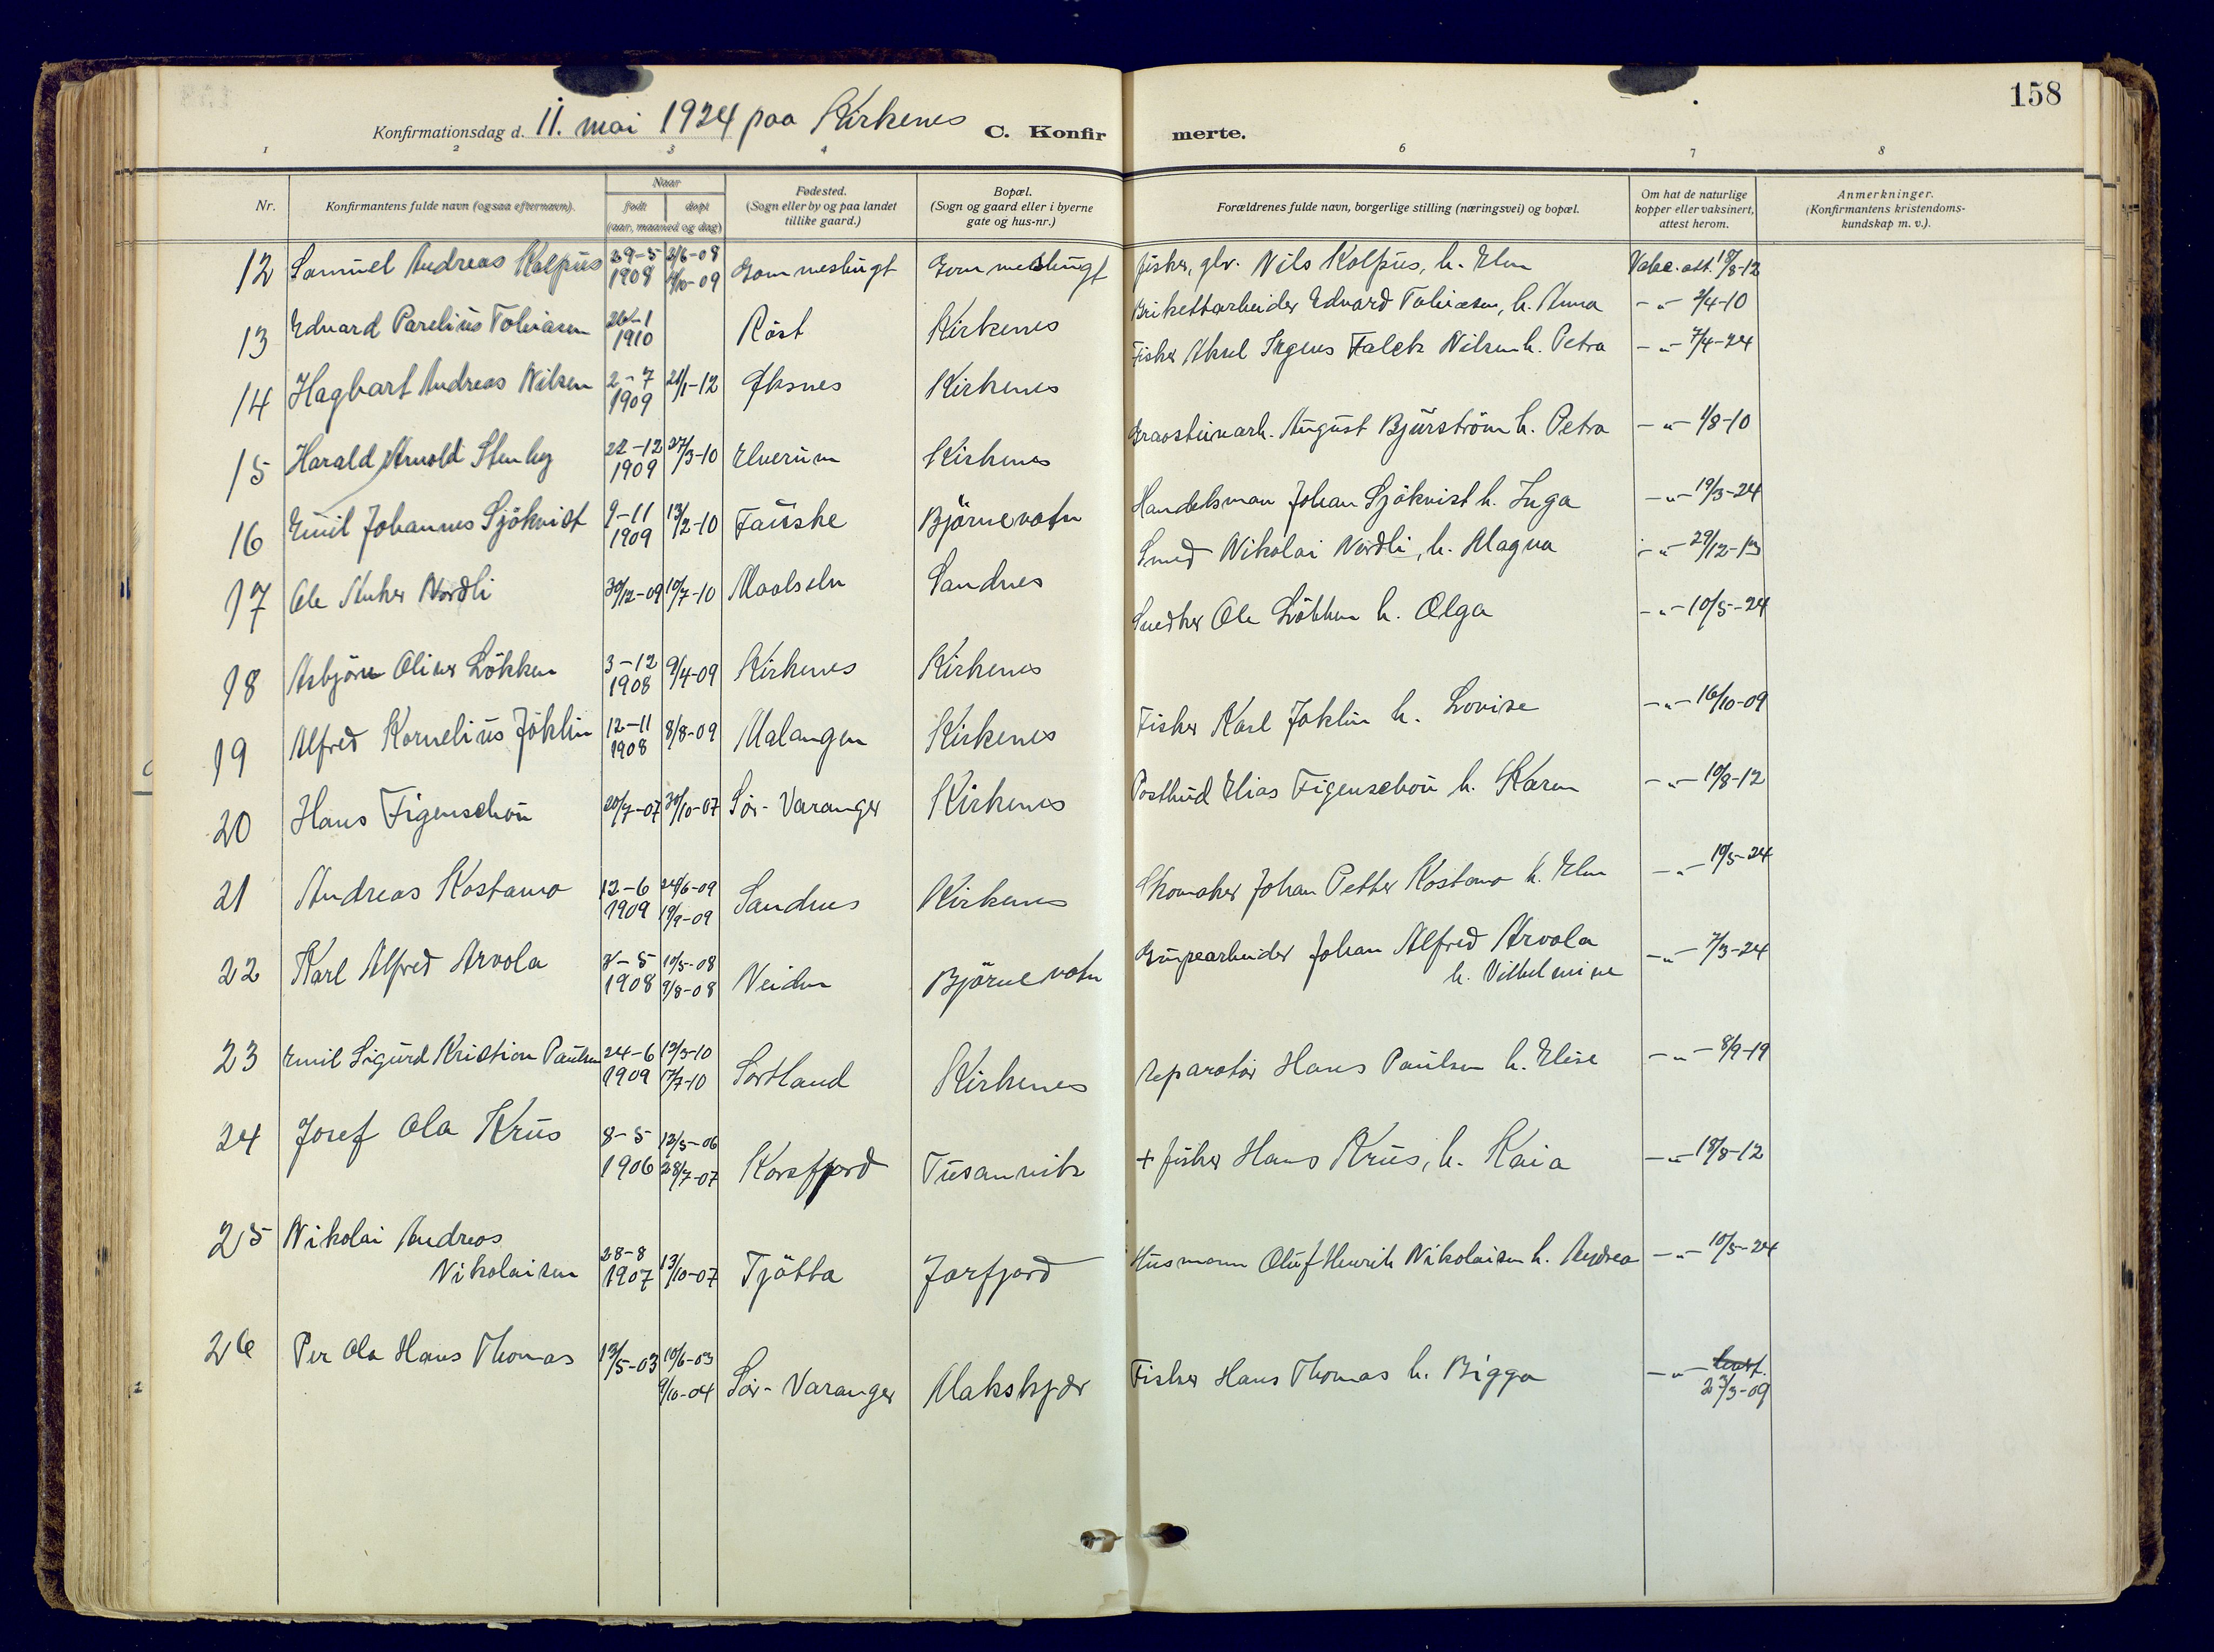 158
Konfirmationsdag d. 11. mai 1924 paa Kirkenes C. Konfirmerte.
1 2 3 4 6 7 8
Nr.
Konfirmantens fulde navn (ogsaa efternavn).
Naar
født døpt
(aar, maaned og dag)
Fødested.
(Sogn eller by og paa landet
tillike gaard.)
Bopæl.
(Sogn og gaard eller i byerne
gate og hus-nr.)
Forældrenes fulde navn, borgerlige stilling (næringsvei) og bopæl.
Om hat de naturlige
kopper eller vaksinert,
attest herom.
Anmerkninger.
(Konfirmantens kristendoms-
kundskap m. v.).
12 Samuel Andreas Kolpus 29-5 1908 2/6-08 4/10-09 Fisker, glv. Nils Kolpus, h. Elen Vakc. att. 18/8-12
13 Edvard Parelius Tobiasen 26-1 1910 Röst Kirkenes Brikettarbeider Edvard Tobiasen, h. Anna -"- 2/4-10
14 Hagbart Andreas Nilsen 2-7 1909 21/1-12 Øksnes Kirkenes Fisker Aksel Falck Nilsen h. Petra -"- 7/4-24
15 Harald Arnold Stenby 22-12 1909 27/3-10 Elverum Kirkenes Graasteinarb. August Bjürström h. Petra -"- 1/8-10
16 Emil Johannes Sjökvist 9-11 1909 13/2-10 Fauske Björnevatn Handelsman Johan Sjökvist h. Inga -"- 19/3-24
17 Ole Anker Nordli 30/12-09 10/7-10 Maalselv Sandnes Smed Nikolai Nordli, h. Magna -"- 29/12-13
18 Asbjörn Oliver Lökken 3-12 1908 9/4-09 Kirkenes Kirkenes Snedker Ole Lökken h. Olga -"- 10/5-24
19 Alfred Kornelius Jöklin 12-11 1908 8/8-09 Malangen Kirkenes Fisker Karl Joklin h. Lovise -"- 16/10-09
20 Hans Figenschou 20/7-07 30/10-07 Sör-Varanger Kirkenes Postbud Elias Figenschou h. Karen -"- 10/8-12
21 Andreas Kostamo 12-6 1909 24/6-09 19/9-09 Sandnes Kirkenes Skomaker Johan Petter Kostamo h. Elen -"- 10/5-24
22 Karl Alfred Arvola 8-5 1908 10/5-08 9/8-08 Neiden Björnevatn Grupearbeider Johan Alfred Arvola
h. Vilhelmine -"- 7/3-24
23 Emil Sigurd Kristian Paulsen 24-6 1909 12/3-10 17/7-10 Sortland Kirkenes Reparatör Hans Paulsen h. Elise -"- 8/9-19
24 Josef Ola Krus 8-5 1906 12/5-06 28/7-07 Korsfjord Tusanvik + fisker Hans Krus, h. Kaia -"- 18/8-12
25 Nikolai Andreas
Nikolaisen 28-8 1907 13/10-07 Tjötta Jarfjord Husmann Oluf Henrik Nikolaisen h. Andrea -"- 10/5-24
26 Per Ola Hans Thomas 13/5-03 10/6-03 9/10-04 Sör-Varanger Makskjær Fisker Hans Thomas h. Bigga -"- 27/3-09